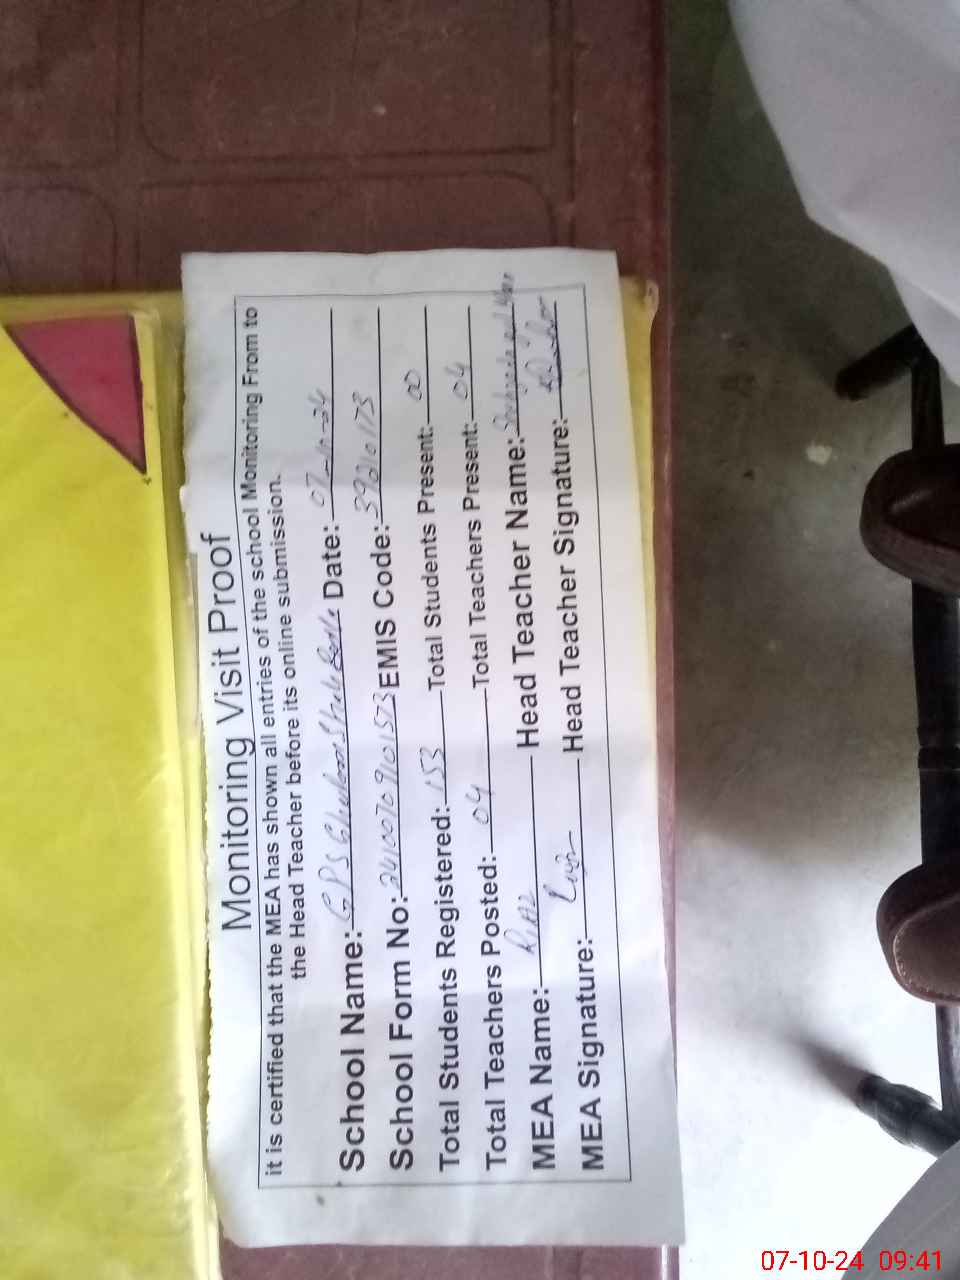 Monitoring Visit Proof
it is certified that the MEA has shown all entries of the school Monitoring From to
the Head Teacher before its online submission.
School Name: GPS Ghulam Date: 07-10-24
School Form No: 24100709101573 EMIS Code: 39210173
Total Students Registered: 153 Total Students Present: 00
Total Teachers Posted: 04 Total Teachers Present: 04
MEA Name: Riaz Head Teacher Name:
MEA Signature: Head Teacher Signature:
07-10-24 09:41